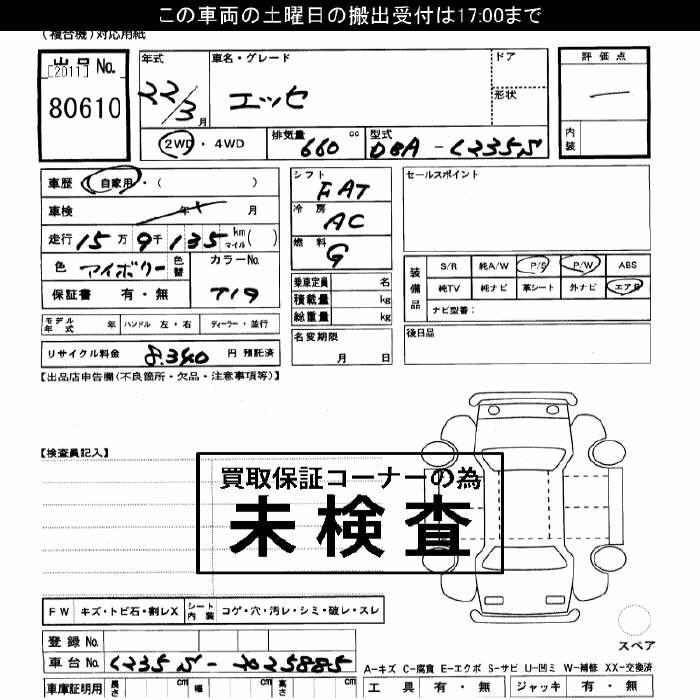 この車両の土曜日の搬出受付は17:00まで
(複合機)対応用紙
出品 No.
[2011]
80610
年式
22/3 月
車名・グレード
エッセ
ドア
形状
評価点
内装
2WD・4WD
排気量 660 cc
型式 DBA - L235S
車歴 自家用・( )
車検 年 月
走行 15万 9千 135 km マイル( )
色 アイボリー 色替
カラーNo. T19
保証書 有・無
シフト FAT
冷房 AC
燃料 G
乗車定員 名
積載量 kg
総重量 kg
セールスポイント
装備品
S/R 純A/W P/S P/W ABS
純TV 純ナビ 革シート 外ナビ エアB
ナビ型番:
モデル年式 年 ハンドル 左・右 ディーラー・並行
名変期限 月 日
後日品
リサイクル料金 8,340 円 預託済
【出品店申告欄(不良箇所・欠品・注意事項等)】
【検査員記入】
買取保証コーナーの為
未検査
FW キズ・トビ石・割レX シート内装 コゲ・穴・汚レ・シミ・破レ・スレ
スペア
登録 No.
車台 No. L235S - 2025885
A-キズ C-腐食 E-エクボ S-サビ U-凹ミ W-補修 XX-交換済
車庫証明用 長さ cm 幅 cm 高さ cm
工具 有・無 ジャッキ 有・無